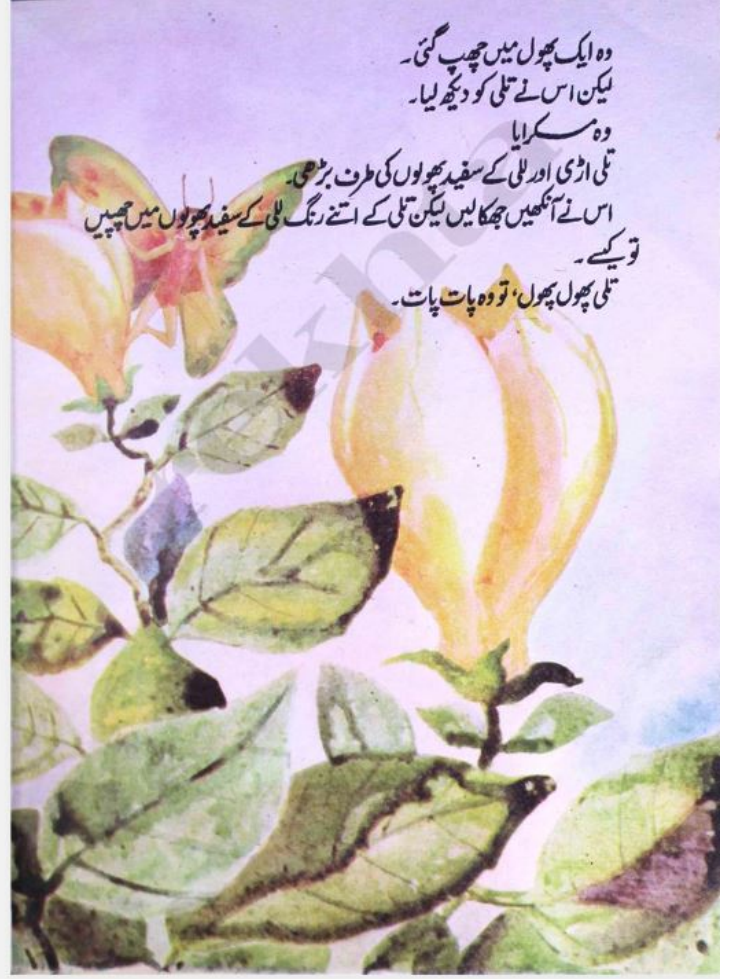 وہ ایک پھول میں چھپ گئی۔
لیکن اس نے تلی کو دیکھ لیا۔
وہ مسکرایا
تلی اڑی اور للی کے سفید پھولوں کی طرف بڑھی۔
اس نے آنکھیں جھکالیں لیکن تلی کے اتنے رنگ للی کے سفید پھولوں میں چھپیں
تو کیسے ۔
تلی پھول پھول، تو وہ پات پات۔